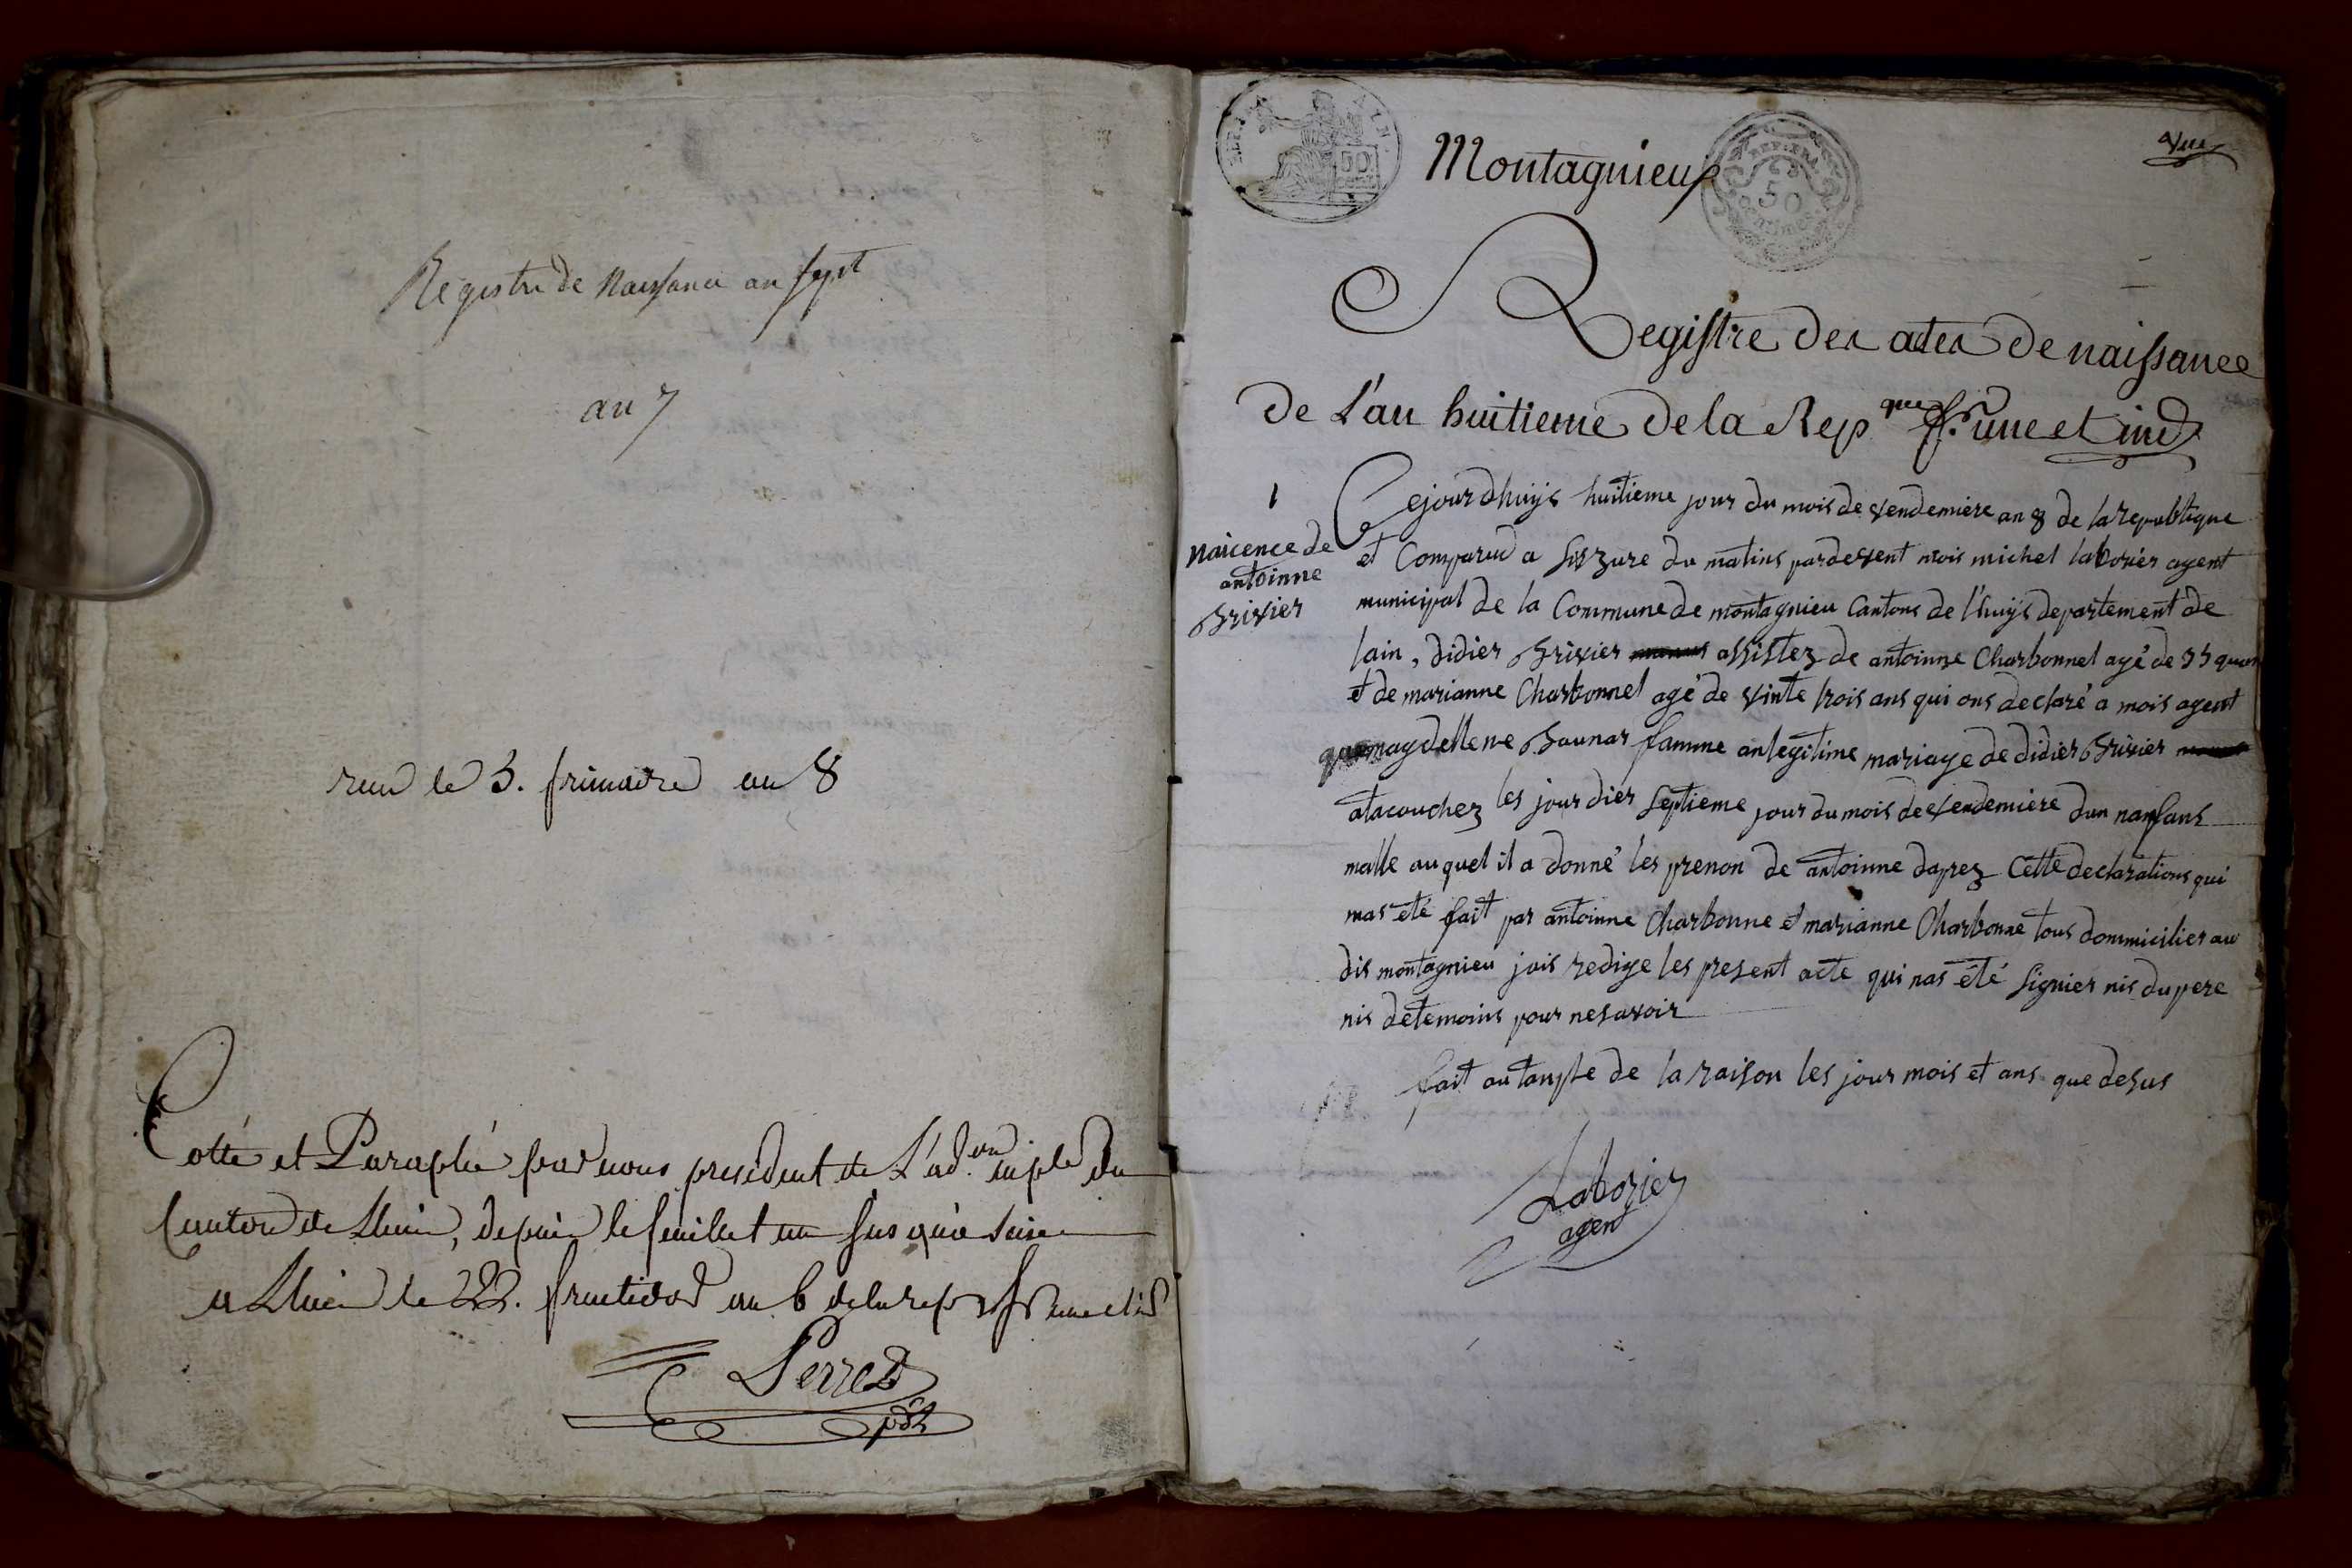 Registre de Naissance an sept
an 7
rem le 3. frimaire an 8
Cotté et Paraphé par nous president de L'ad.on mple du
Canton de Lhuis, depuis le feuillet un jusqu'a seise
a Lhuis le 22. fructidor an 6 de la rep. f. une et ind
Perret
pdt
Montagnieux
50
REP. FRA
50
centimes
Registre des actes de naissance
De L'an huitieme de la Repque f. une et ind
1
naicence de
antoinne
Brivier
Cejourdhuÿs huitieme jour du mois de vendemiere an 8 de la republique
et Comparud a sis zure du matins pardevent mois michel laborier agent
municipal de la Commune de montagnieu Cantons de l'huÿs departement de
lain, didier Brivier assistez de antoinne Charbonnel agé de 35
et de marianne Charbonnel agé de vinte trois ans qui ons declaré a mois agent
magdellene Baunar famme an legitime mariage de didier Brivier
atacouchez les jour dier septieme jour du mois de vendemiere dun nanfans
malle auquel il a donné les prenon de antoinne daprez Cette declarations qui
mas eté fait par antoinne Charbonne et marianne Charbonne tous dommicilier au
dis montagnieu jais redige les present acte qui nas été signier nis du pere
nis detemoins pour nesavoir
fait au tample de la raison les jour mois et ans que desus
Laborier
agen